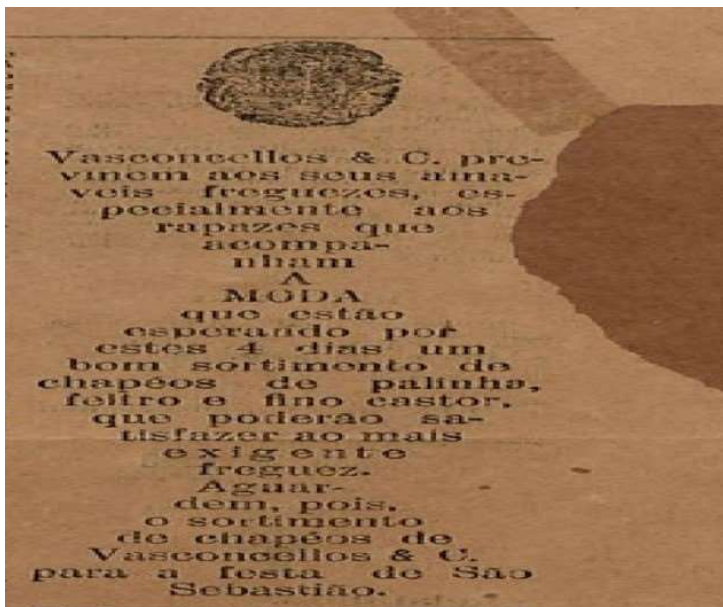 Vasconcellos & C. pre-
vinem aos seus ama-
veis freguezes, es-
pecialmente aos
rapazes que
acompa-
nham
A
MODA
que estão
esperando por
estes 4 dias um
bom sortimento de
chapéos de palinha,
feltro e fino castor,
que poderão sa-
tisfazer ao mais
exigente
freguez.
Aguar-
dem, pois,
o sortimento
de chapéos de
Vasconcellos & C.
para a festa de São
Sebastião.